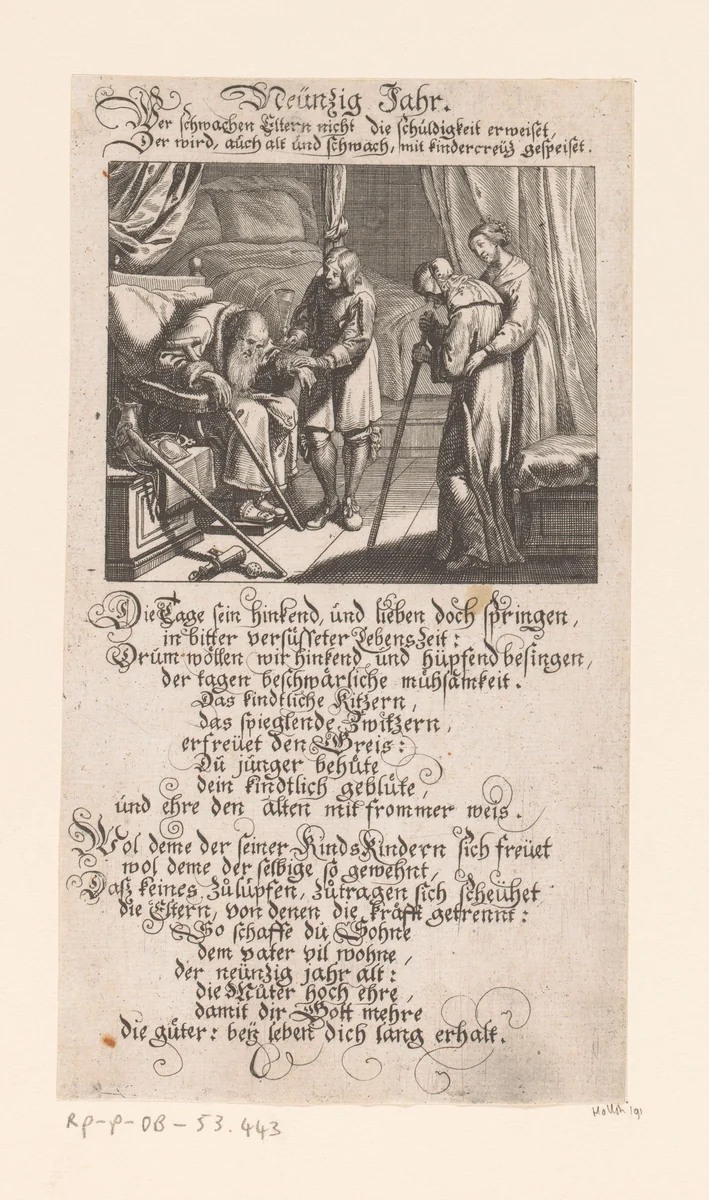 Neünzig Jahr.
Wer schwachen Eltern nicht die schüldigkeit erweiset,
Der wird, aüch alt ünd schwach, mit kindercreüz gespeiset.
Die Tage sein hinkend, ünd lieben doch springen,
in bitter versüsseter lebens Zeit:
Drüm wöllen wir hinkend ünd hüpfend besingen,
der tagen beschwärliche mühsamkeit.
Das kindtliche Kitzern,
das spieglende Zwitzern,
erfreüet den Greis:
Dü jünger behüte
dein kindtlich geblüte,
ünd ehre den alten mit frommer weis.
Wol deme der seiner Kinds Kindern sich freüet
wol deme der selbige so gewehnt,
Daß keines Zülüpfen, Zütragen sich scheühet
die Eltern, von denen die kräfft getrennt:
So schaffe dü Sohne
dem vater vil wohne,
der neünzig jahr alt:
die Müter hoch ehre,
damit dir Gott mehre
die güter: beÿ leben dich lang erhalt.
RP-P-OB-53.443